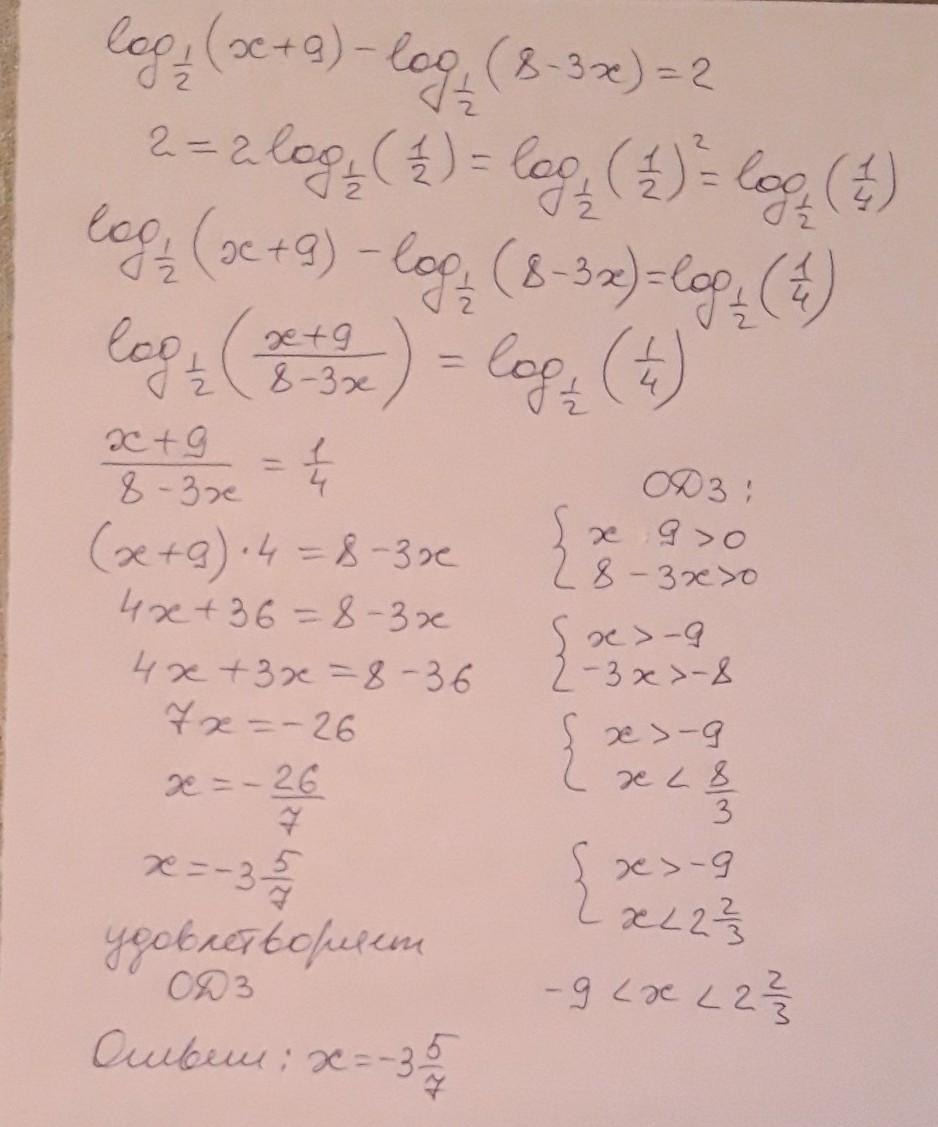 log_{1/2}(x+9) - log_{1/2}(8-3x) = 2
2 = 2log_{1/2}(1/2) = log_{1/2}(1/2)² = log_{1/2}(1/4)
log_{1/2}(x+9) - log_{1/2}(8-3x) = log_{1/2}(1/4)
log_{1/2}((x+9)/(8-3x)) = log_{1/2}(1/4)
(x+9)/(8-3x) = 1/4
(x+9)·4 = 8-3x
4x+36 = 8-3x
4x+3x = 8-36
7x = -26
x = -26/7
x = -3 5/7
удовлетворяет
ОДЗ
Ответ: x = -3 5/7
ОДЗ:
{ x 9>0
8-3x>0
{ x>-9
-3x>-8
{ x>-9
x<8/3
{ x>-9
x<2 2/3
-9<x<2 2/3